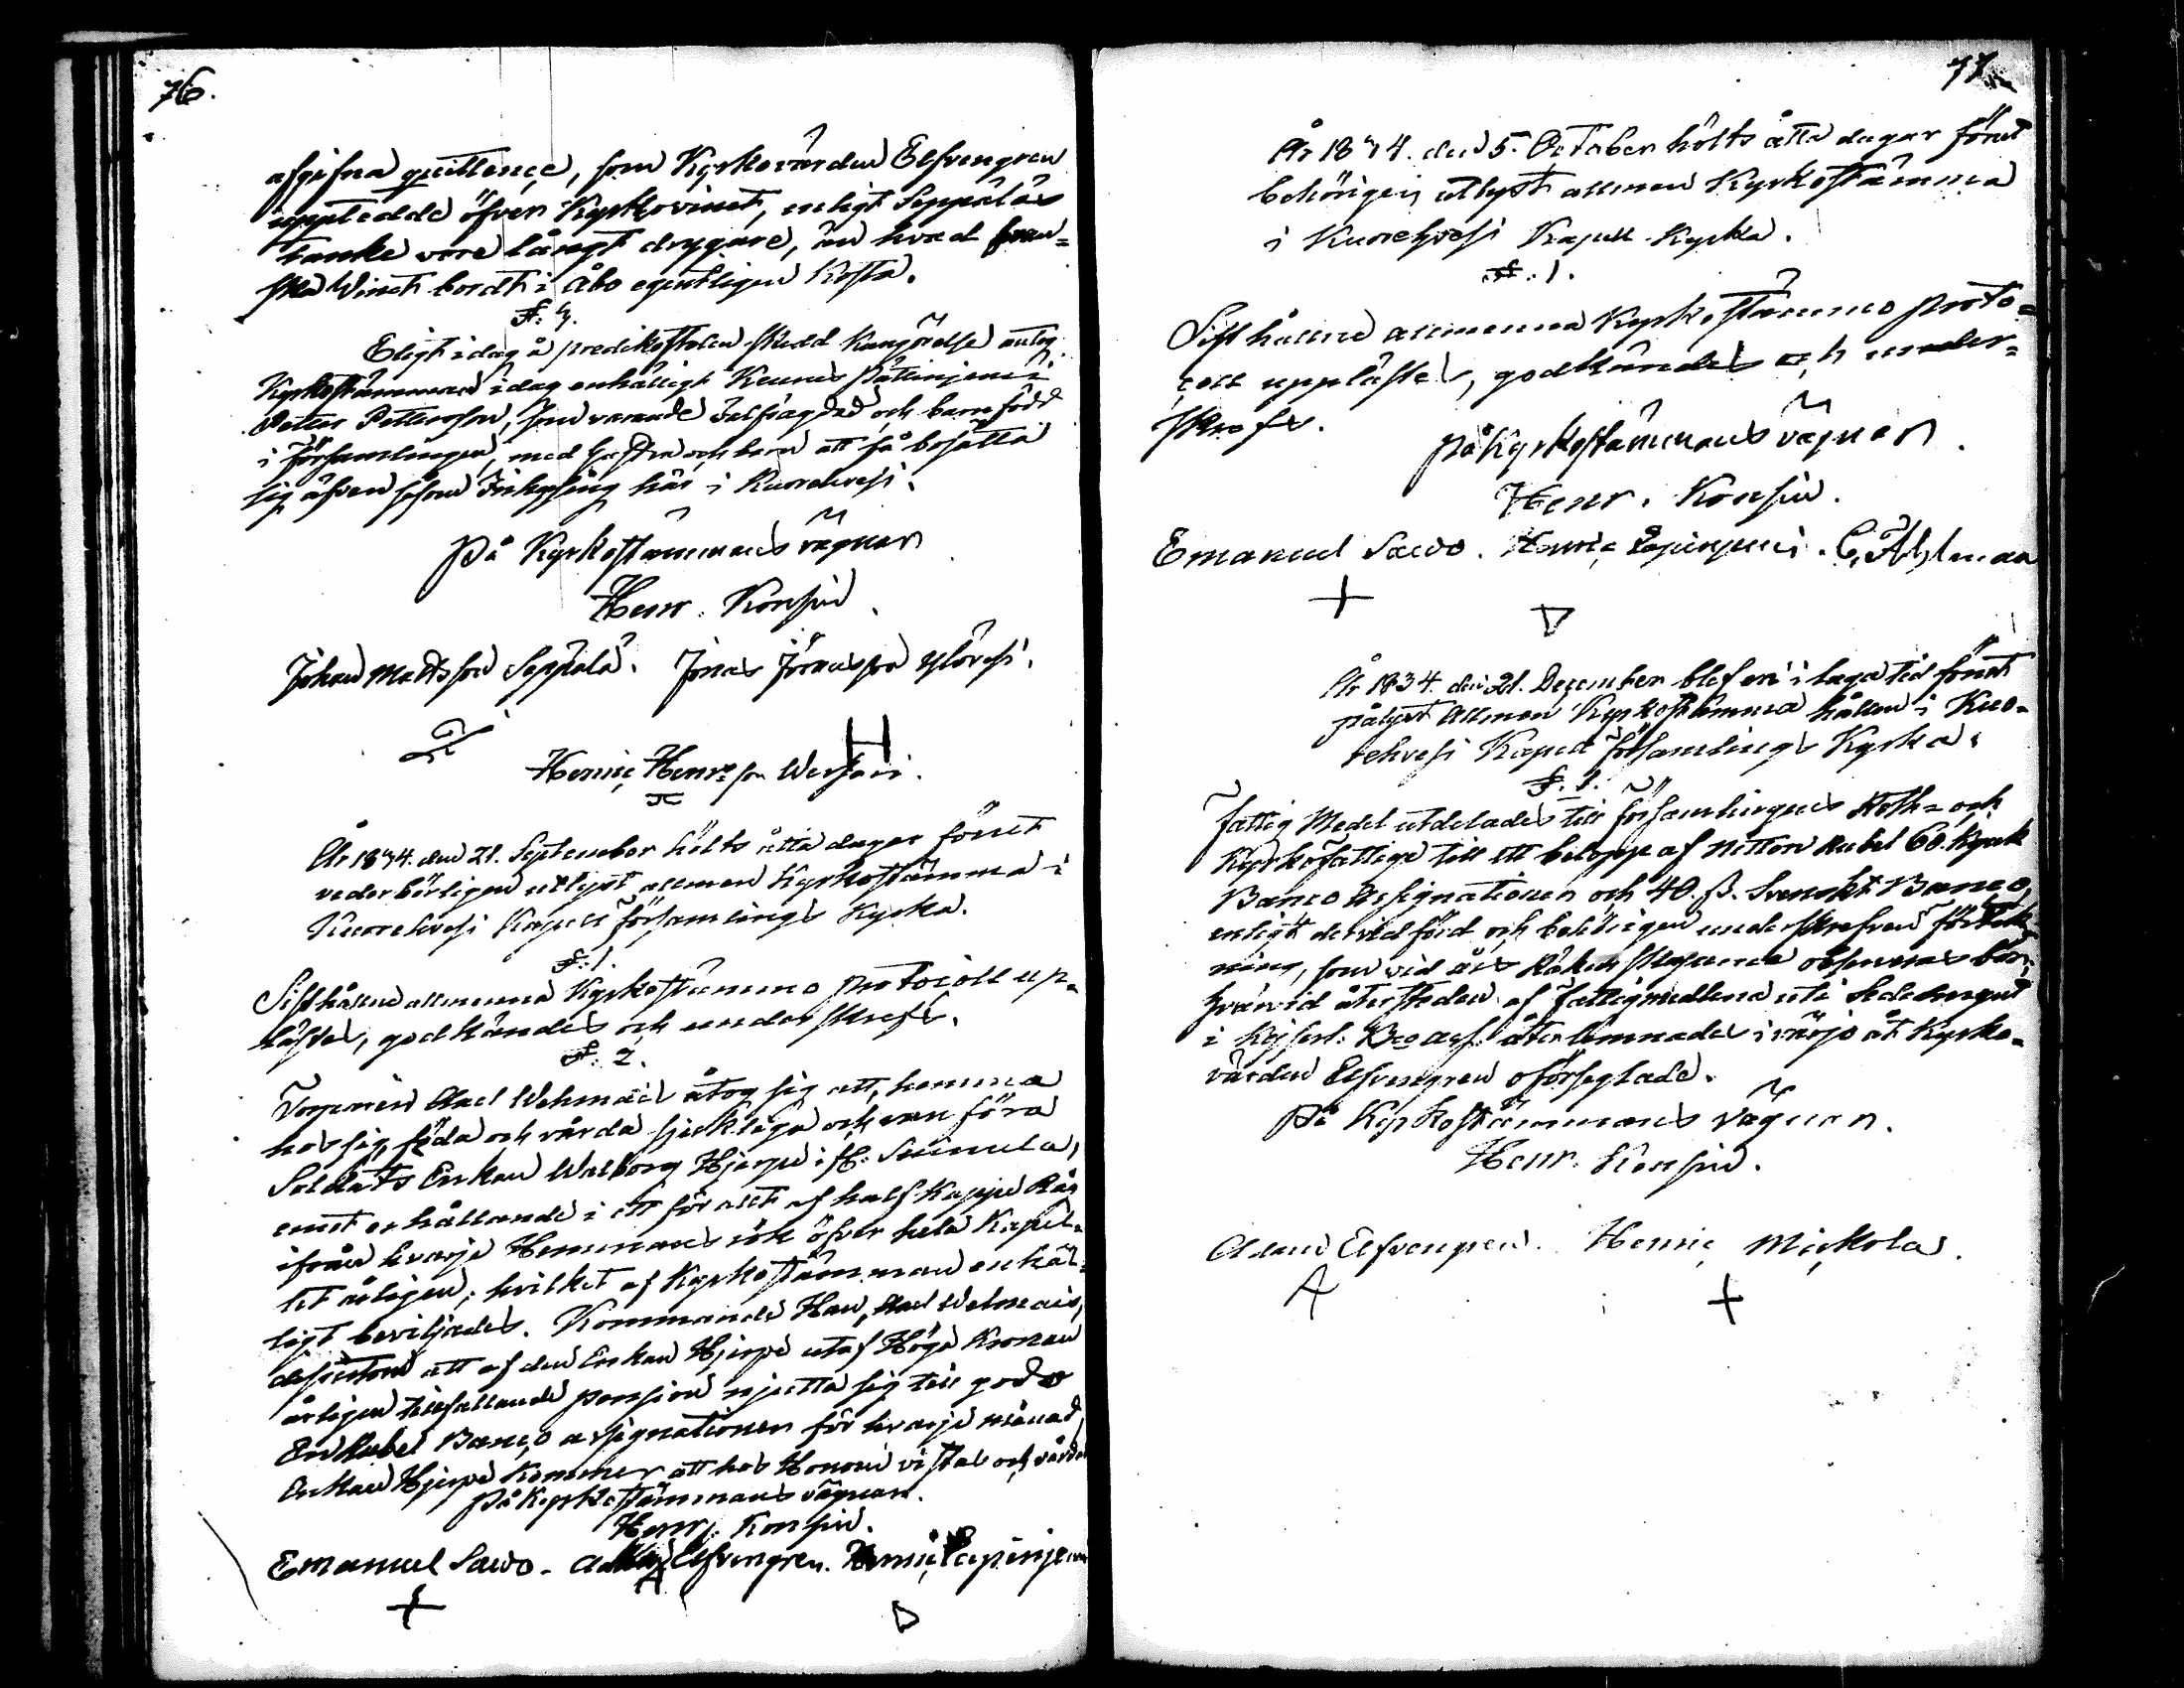 76.
afgifna quittence, som Kyrkovärden Elfvengren
upptedde öfver Kyrkovinet, enligt Seppäläs
tanke vore långt drygare, än hvad fran-
ska Winet bordt i Åbo egentligen kosta.
§: 4.
Eligt i dag å predikstolen skedd kungörelse antog
Kyrkostämman idag enhälligt
Petter Pettersson, som varande och barnfödd
i församlingen, med hustru och barn att få bosätta
sig äfven såsom Inhysing här i Kuorehvesi.
På Kyrkostämmans vägnar
Henr. Konsin.
Johan Mattsson Seppälä. Jonas Jöransson Ylövesi.
H
Henric Henrs son
År 1834. den 21. September hölts åtta dagar förut
vederbörligen utlyst allmen Kyrkostämma i
Kuorehvesi Kapell församlings Kyrka.
§: 1.
Sist hållne allmenna Kyrkostämmo protocoll up-
lästes, godkändes och underskrefs.
§: 2.
Torparen Axel Wehmais åtog sig att, hemma
hos sig, föda och vårda sjukliga och vanföra
Soldats Enkan Walborg Hjerpe i St. Seimela,
emot erhållande i ett för allt af half Kappe Råg
ifrån hvarje Hemmans rök öfver hela Kapel-
let årligen; hvilket af Kyrkostämman enhäl-
ligt beviljades. Kommande Han, Axel Wehmais,
desutom att af den Enkan Hjerpe utaf Höga Kronan
årligen tillfallande pension njutta sig till godo
En Rubel Banco assignationer för hvarje månad,
Enkan Hjerpe kommer att hos Honom vistas och vårdas
På Kyrkostämmans vägnar.
Henr. Konsin.
Emanuel Sawo. Adam Elfvengren. Henric Papinjemi
77
År 1834. den 5. October hölts åtta dagar förut
behörigen utlyst allmen Kyrkostämma
i Kuorehvesi Kapell Kyrka.
§: 1.
Sist hållne allmenna Kyrkostämmo proto-
coll upplästes, godkändes och under-
skrefs.
På Kyrkostämmans vägnar
Henr. Konsin.
Emanuel Sawo. Henric Papinjemi. C. Ahlman
År 1834. den 21. December blef en i laga tid förut
pålyst Allmen Kyrkostämma hållen i Kuo-
rehvesi Kapell församlings Kyrka.
§. 1.
Fattig Medel utdelades till församlingens Roth- och
Kyrkofattige till ett belopp af Nitton Rubel 60. Kopek
Banco Assignationer och 40. ß. Svenskt Banco,
enligt dervid förd och behörigen underskrefven förtek-
ning, som vid års Räkenskaperna observeras bör;
hvarvid återstoden af fattigmedlena uti
i Kejserl. Bco ass. återlemnades i mörjo åt Kyrko-
värden Elfvengren oförseglade.
På Kyrkostämmans vägnar.
Henr. Konsin.
Adam Elfvengren. Henric Mickola.